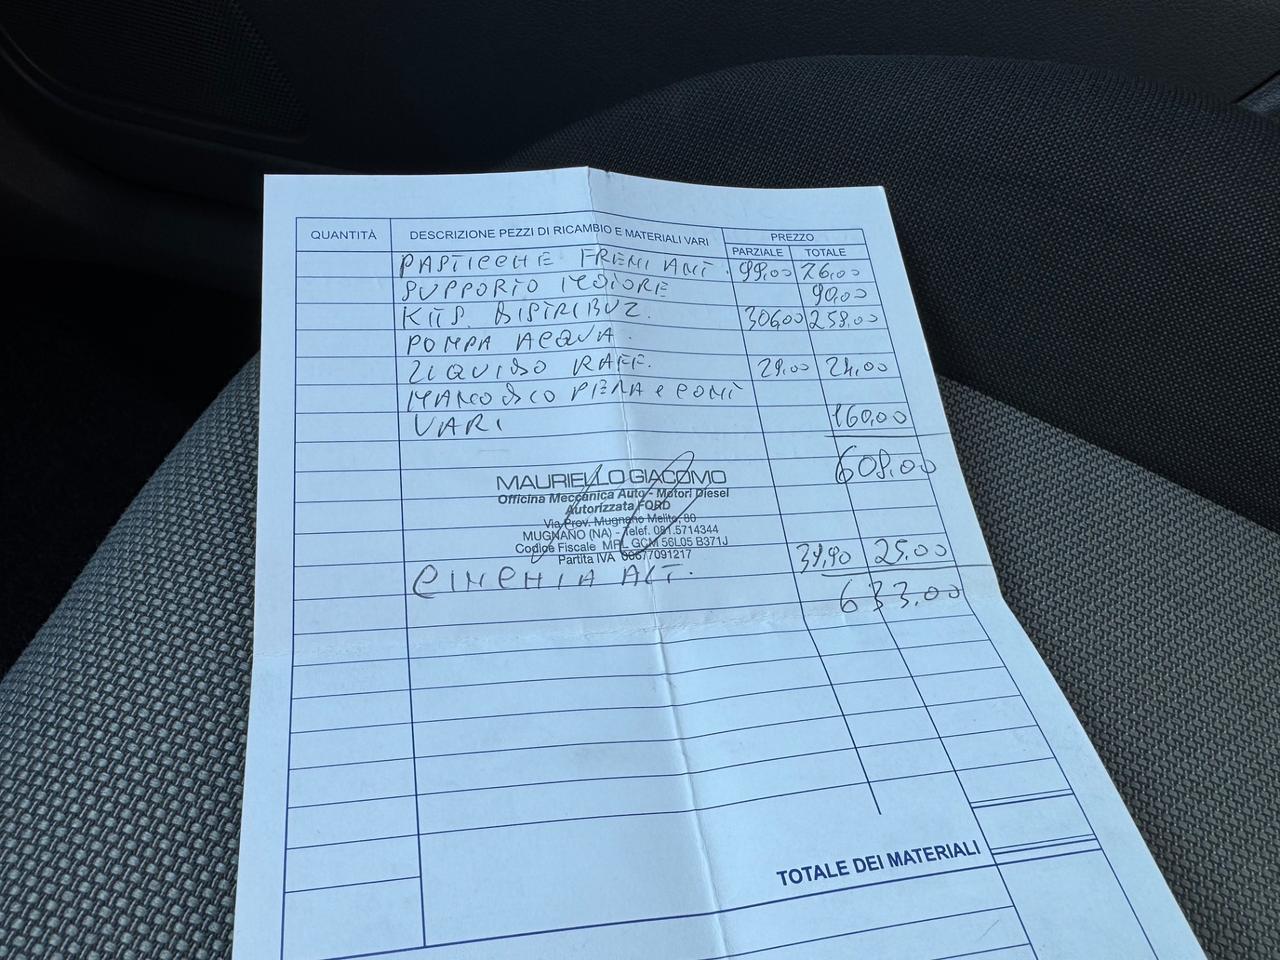 QUANTITÀ DESCRIZIONE PEZZI DI RICAMBIO E MATERIALI VARI PREZZO
PARZIALE TOTALE
PASTICCHE FRENI ANT. 99,00 76,00
SUPPORTO MOTORE 90,00
KIT S. DISTRIBUZ. 306,00 258,00
POMPA ACQUA.
LIQUIDO RAFF. 29,00 24,00
MANODSCO PIENA e CONT
VARI 160,00
608,00
MAURIELLO GIACOMO
Officina Meccanica Auto - Motori Diesel
Autorizzata FORD
Via Prov. Mugnano Melito, 80
MUGNANO (NA) - Telef. 081.5714344
Codice Fiscale MRL GCM 56L05 B371J
Partita IVA 06677091217
CINCHIA ALT. 39,90 25,00
633,00
TOTALE DEI MATERIALI